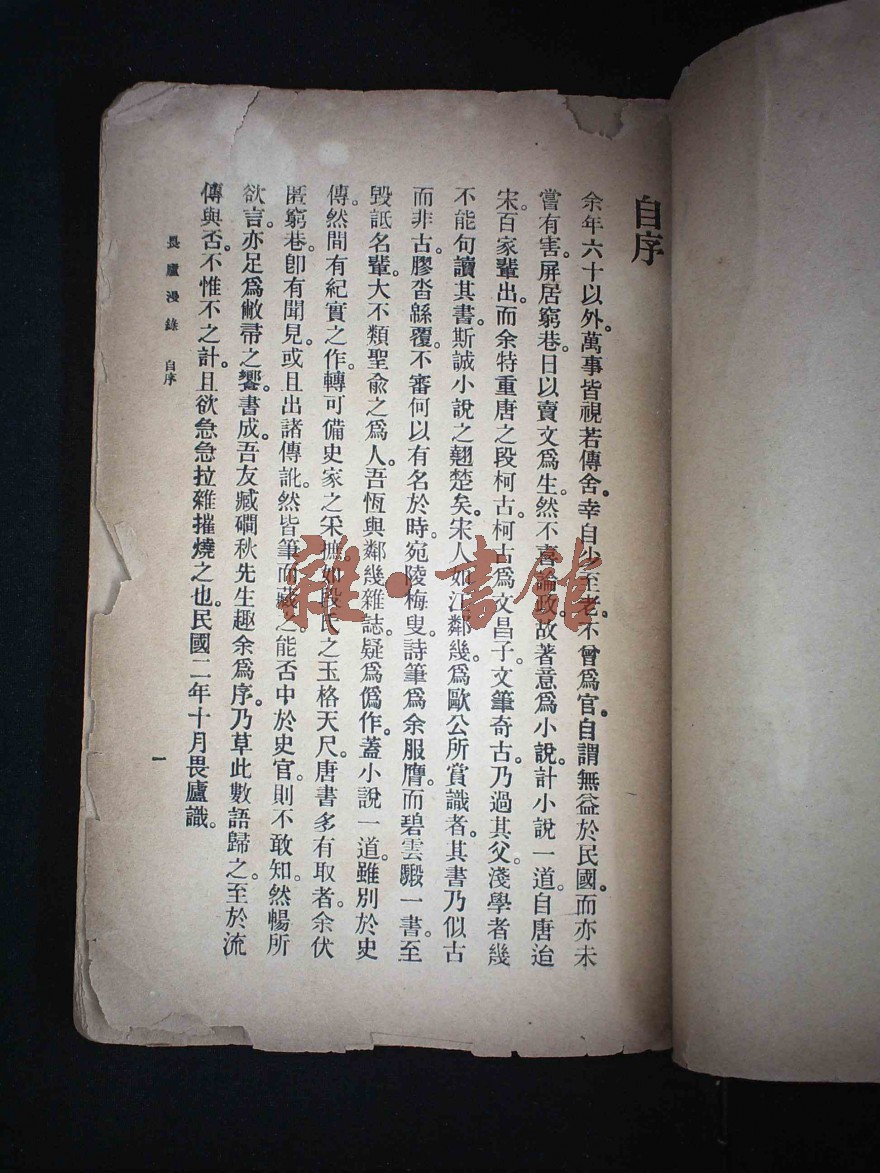 自序
余年六十以外。萬事皆視若傳舍。幸自少至老。不曾爲官。自謂無益於民國。而亦未
嘗有害。屏居窮巷。日以賣文爲生。然不喜論政。故著意爲小說。計小說一道。自唐迨
宋。百家輩出。而余特重唐之段柯古。柯古爲文昌子。文筆奇古。乃過其父。淺學者幾
不能句讀其書。斯誠小說之翹楚矣。宋人如江鄰幾。爲歐公所賞識者。其書乃似古
而非古。膠沓緜覆。不審何以有名於時。宛陵梅叟。詩筆爲余服膺。而碧雲騢一書。至
毀詆名輩。大不類聖俞之爲人。吾恆與鄰幾雜誌。疑爲僞作。蓋小說一道。雖別於史
傳。然間有紀實之作。轉可備史家之采摭。如段氏之玉格天尺。唐書多有取者。余伏
匿窮巷。卽有聞見。或且出諸傳訛。然皆筆而藏之。能否中於史官。則不敢知。然暢所
欲言。亦足爲敝帚之饗。書成。吾友臧磵秋先生趣余爲序。乃草此數語歸之。至於流
傳與否。不惟不之計。且欲急急拉雜摧燒之也。民國二年十月畏廬識。
畏廬漫錄 自序
一
雜·書館